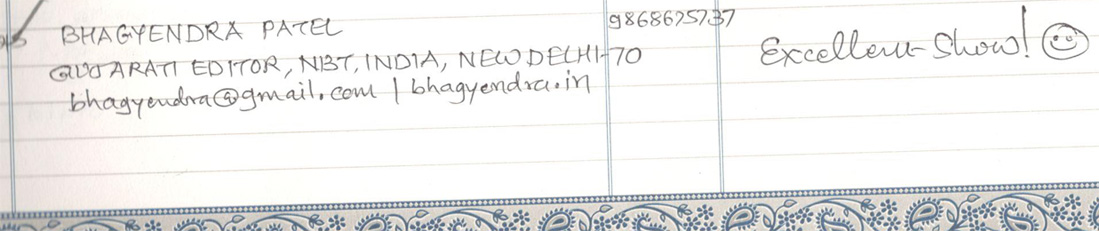 BHAGYENDRA PATEL
9868625737
GUJARATI EDITOR, NBT, INDIA, NEW DELHI-70
bhagyendra@gmail.com | bhagyendra.in
Excellent Show!